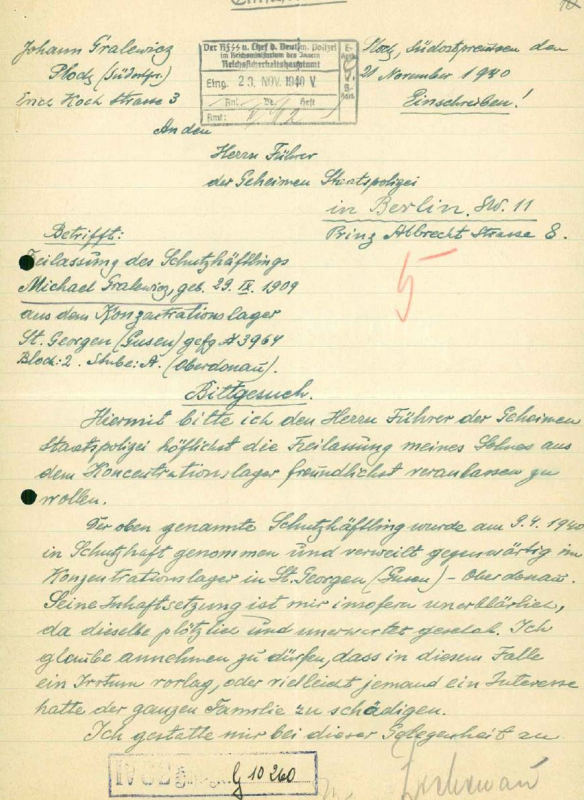 Johann Gralewicz
Plock (Südostpr.)
Erich Koch Strasse 3
Der RFSS u. Chef d. Deutsch. Polizei
im Reichsministerium des Innern
Reichssicherheitshauptamt
Eing. 23. NOV. 1940 V.
Anl. Bd. Heft
Amt:
Plock, Südostpreussen den
20 November 1940
Einschreiben!
An den
Herrn Führer
der Geheimen Staatspolizei
in Berlin. SW. 11
Prinz Albrecht Strasse 8.
Betrifft:
Freilassung des Schutzhäftlings
Michael Gralewicz, geb. 29. IX. 1909
aus dem Konzentrationslager
St. Georgen (Gusen) gefg # 3964
Block: 2. Stube: A. (Oberdonau).
5
Bittgesuch.
Hiermit bitte ich den Herrn Führer der Geheimen
Staatspolizei höflichst die Freilassung meines Sohnes aus
dem Koncentrationslager freundlichst veranlassen zu
wollen.
Der oben genannte Schutzhäftling wurde am 9.4.1940
in Schutzhaft genommen und verweilt gegenwärtig im
Konzentrationslager in St. Georgen (Gusen) - Oberdonau.
Seine Inhaftsetzung ist mir insofern unerklärlich,
da dieselbe plötzlich und unerwartet geschah. Ich
glaube annehmen zu dürfen, dass in diesem Falle
ein Irrtum vorlag, oder vielleicht jemand ein Interesse
hatte der ganzen Familie zu schädigen.
Ich gestatte mir bei dieser Gelegenheit an
G 10260
Zichenau